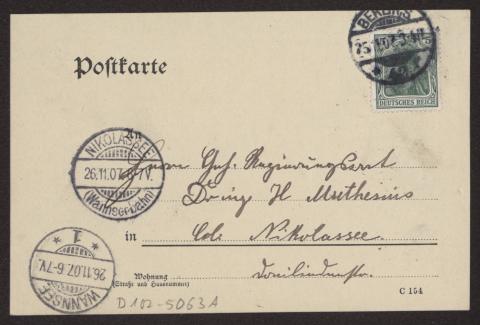 BERLIN S
25.11.07. 3-4N.
DEUTSCHES REICH
Postkarte
An
NIKOLASSEE
26.11.07. 6-7V.
(Wannseebahn)
Herrn Geh. Regierungsrat
Dr. ing H Muthesius
in Col. Nikolassee.
Wohnung
(Straße und Hausnummer)
WANNSEE
* 1 *
26.11.07. 6-7V.
C 154
D 102-5063A